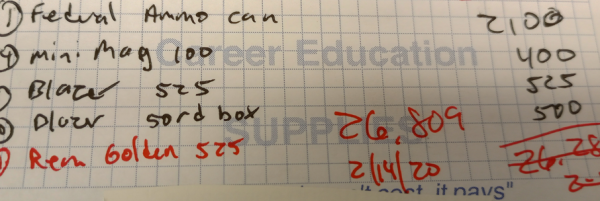 ① Federal Ammo can 2,100
④ mini Mag 100 400
Blazer 525 525
Blazer 50rd box 500
Rem Golden 525 26,809
2/14/20
Career Education
SUPPLIES
it pays"